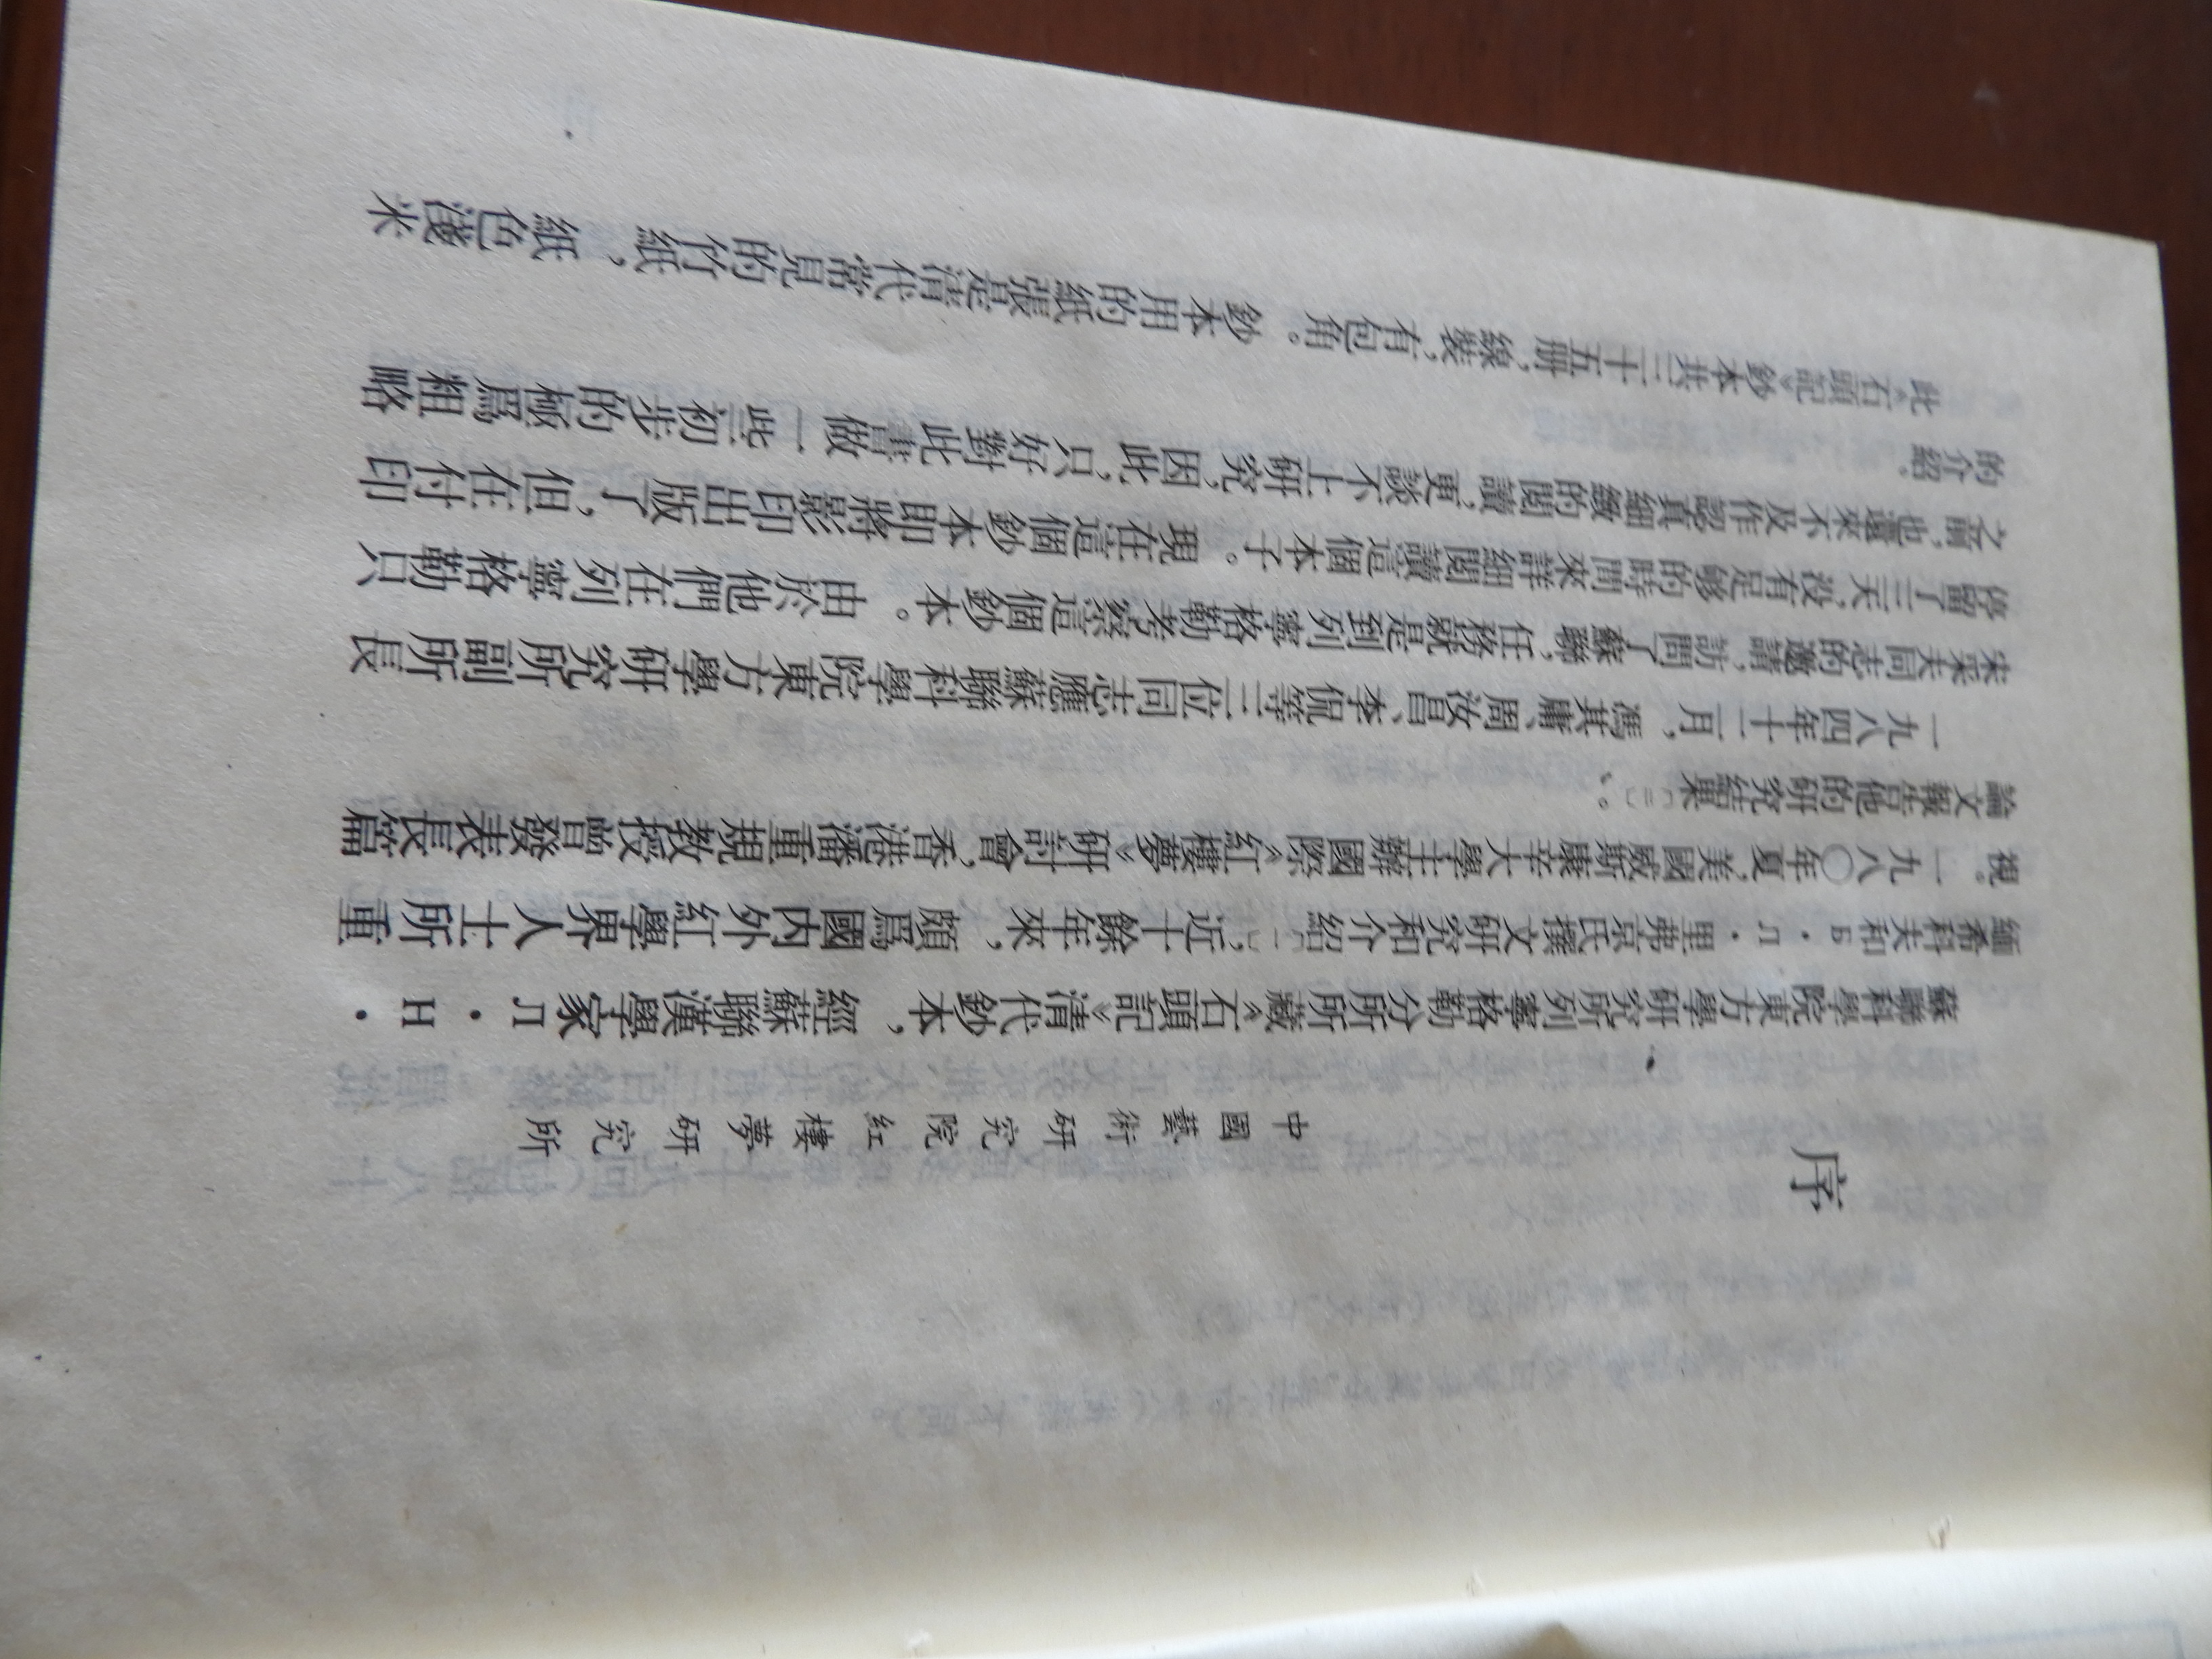 序
中國藝術研究院紅樓夢研究所
蘇聯科學院東方學研究所列寧格勒分所所藏《石頭記》清代鈔本，經蘇聯漢學家Л·Н·
緬希科夫和Б·Л·里弗京氏撰文研究和介紹〔一〕，近十餘年來，頗爲國內外紅學界人士所重
視。一九八〇年夏，美國威斯康辛大學主辦國際《紅樓夢》研討會，香港潘重規教授曾發表長篇
論文報告他的研究結果〔二〕。
一九八四年十二月，馮其庸、周汝昌、李侃等三位同志應蘇聯科學院東方學研究所副所長
宋采夫同志的邀請，訪問了蘇聯，任務就是到列寧格勒考察這個鈔本。由於他們在列寧格勒只
停留了三天，没有足够的時間來詳細閱讀這個本子。現在這個鈔本即將影印出版了，但在付印
之前，也還來不及作認真細緻的閱讀，更談不上研究，因此，只好對此書做一些初步的極爲粗略
的介紹。
此《石頭記》鈔本共三十五册，線裝，有包角。鈔本用的紙張是清代常見的竹紙，紙色淺米